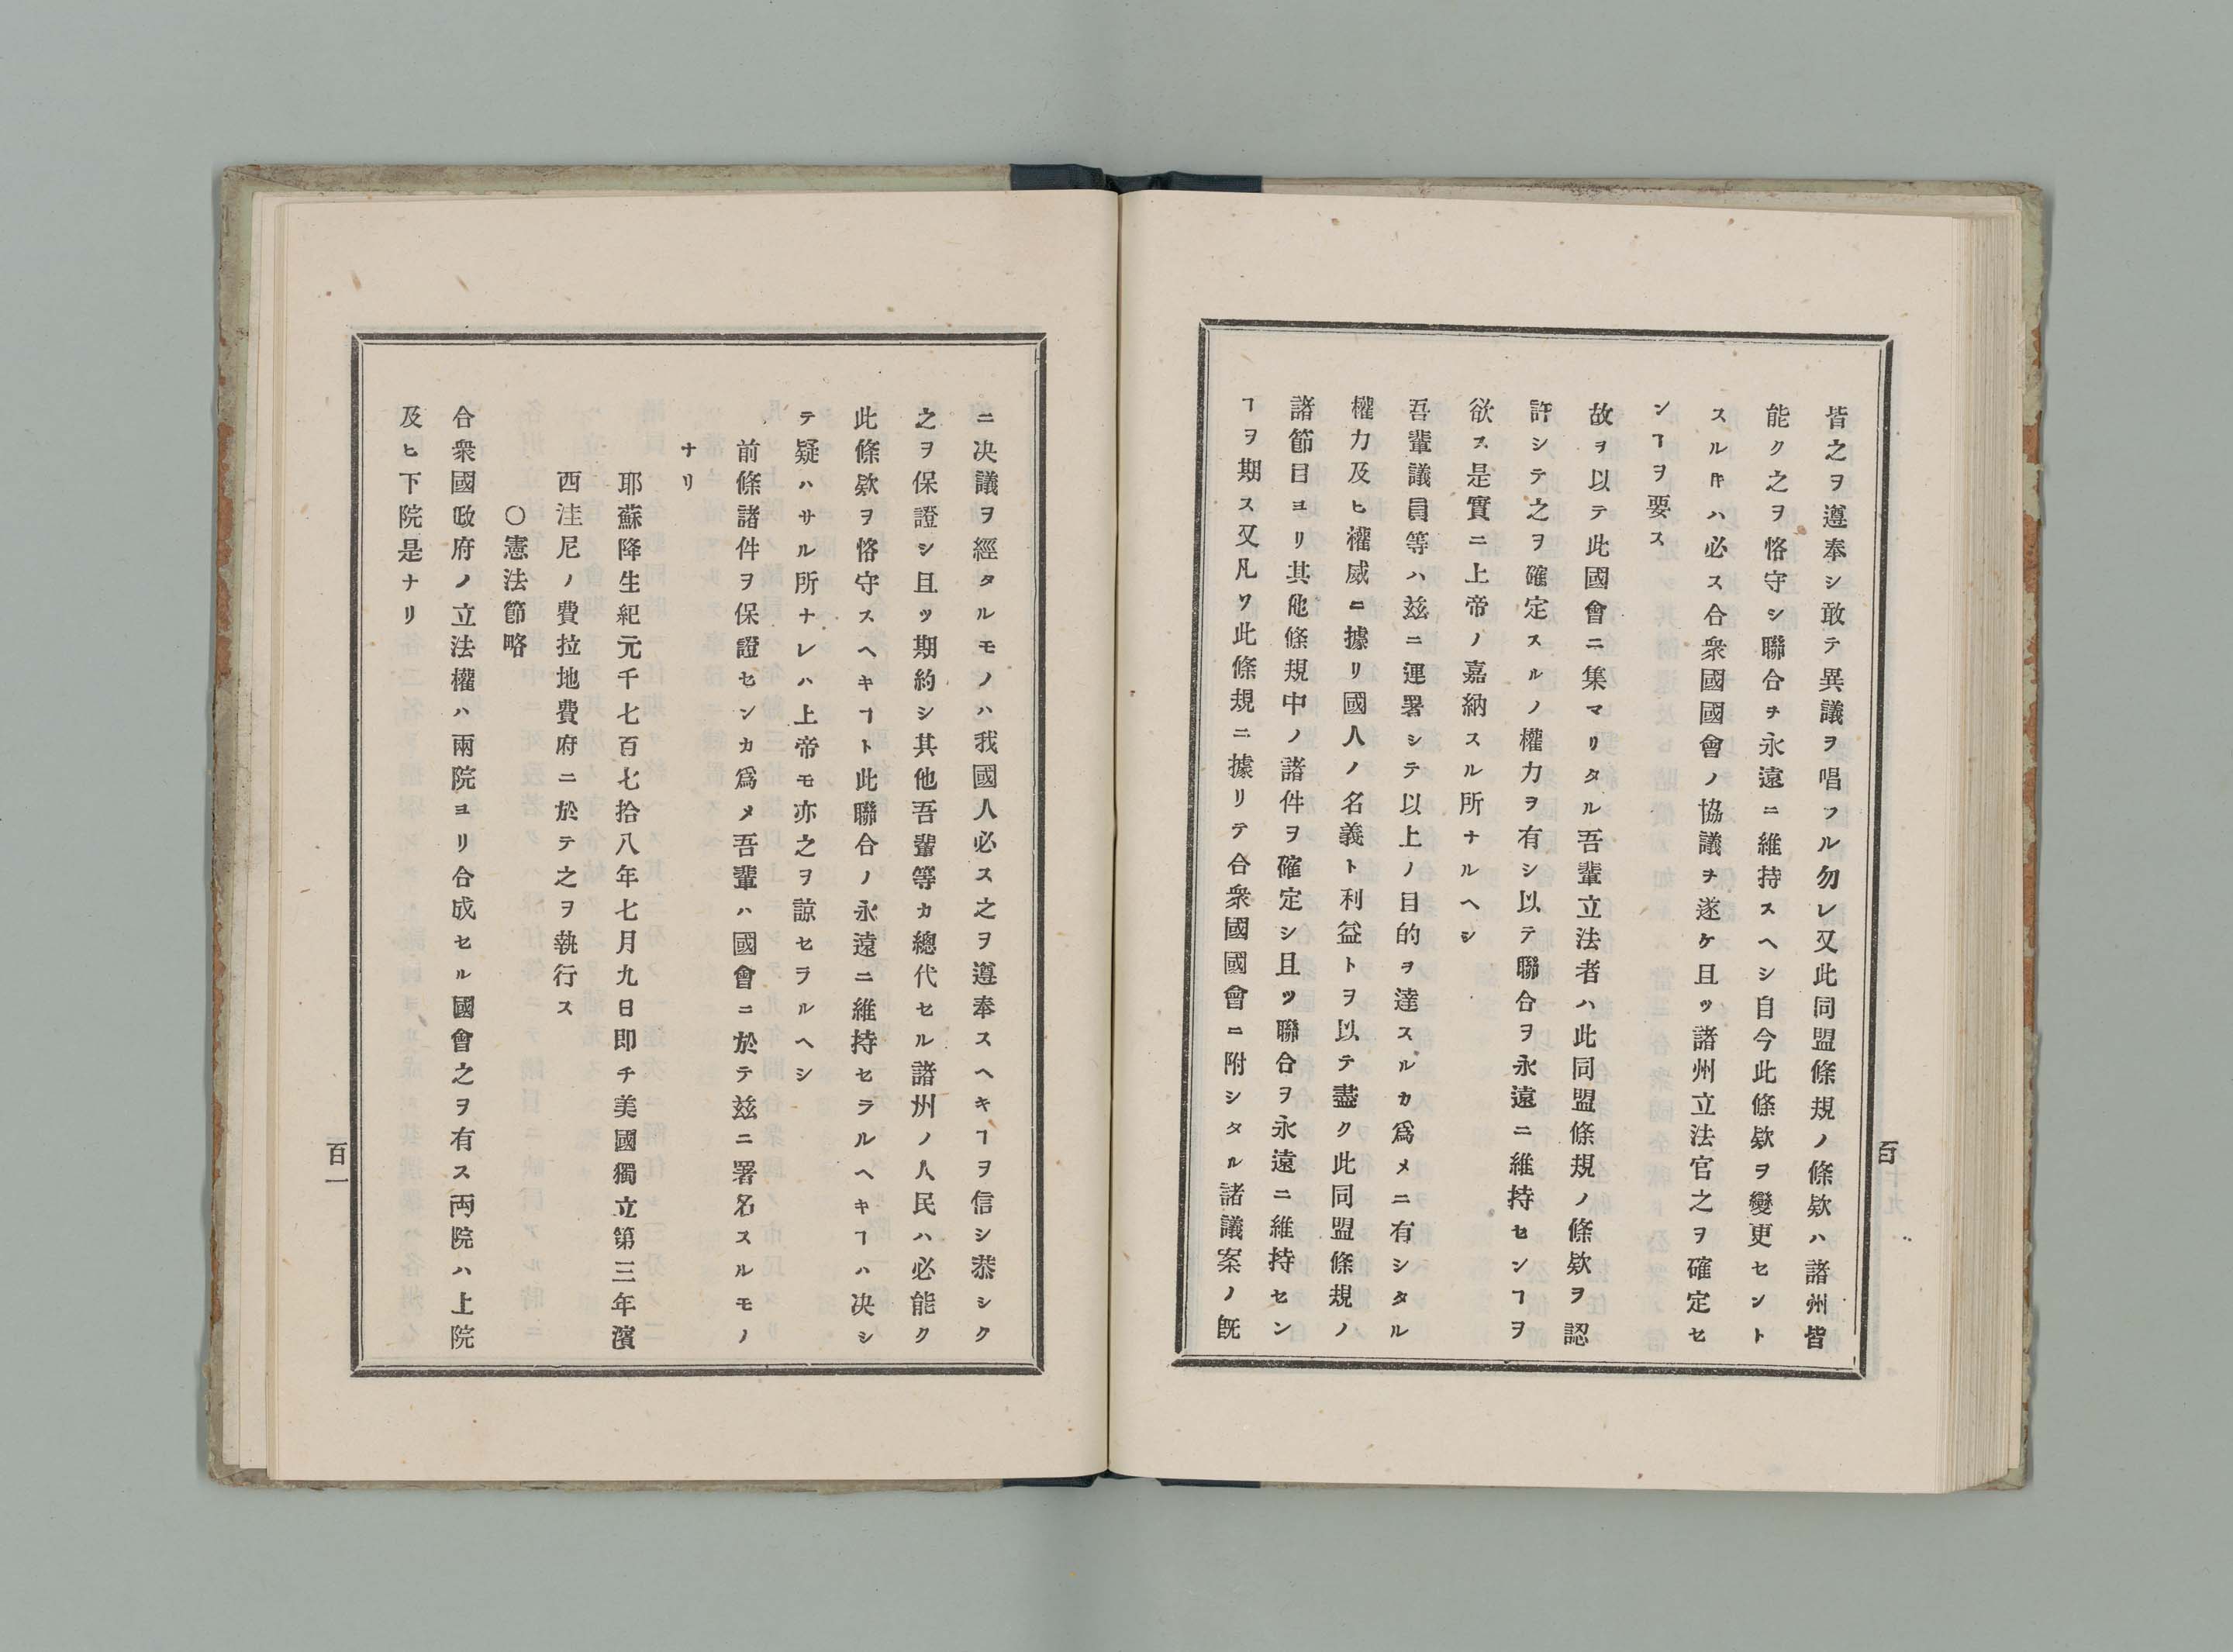 皆之ヲ遵奉シ敢テ異議ヲ唱フル勿レ又此同盟條規ノ條欵ハ諸州皆
能ク之ヲ恪守シ聯合ヲ永遠ニ維持スヘシ自今此條欵ヲ變更セント
スル𪜈ハ必ス合衆國國會ノ協議ヲ遂ケ且ツ諸州立法官之ヲ確定セ
ンヿヲ要ス
故ヲ以テ此國會ニ集マリタル吾輩立法者ハ此同盟條規ノ條欵ヲ認
許シテ之ヲ確定スルノ權力ヲ有シ以テ聯合ヲ永遠ニ維持センヿヲ
欲ス是實ニ上帝ノ嘉納スル所ナルヘシ
吾輩議員等ハ玆ニ連署シテ以上ノ目的ヲ達スルカ爲メニ有シタル
權力及ヒ權威ニ據リ國人ノ名義ト利益トヲ以テ盡ク此同盟條規ノ
諸節目ヨリ其他條規中ノ諸件ヲ確定シ且ツ聯合ヲ永遠ニ維持セン
ヿヲ期ス又凡ソ此條規ニ據リテ合衆國國會ニ附シタル諸議案ノ既
百
ニ决議ヲ經タルモノハ我國人必ス之ヲ遵奉スヘキヿヲ信シ恭シク
之ヲ保證シ且ツ期約シ其他吾輩等カ總代セル諸州ノ人民ハ必能ク
此條欵ヲ恪守スヘキヿト此聯合ノ永遠ニ維持セラルヘキヿハ决シ
テ疑ハサル所ナレハ上帝モ亦之ヲ諒セラルヘシ
前條諸件ヲ保證センカ爲メ吾輩ハ國會ニ於テ玆ニ署名スルモノ
ナリ
耶蘇降生紀元千七百七拾八年七月九日即チ美國獨立第三年濱
西洼尼ノ費拉地費府ニ於テ之ヲ執行ス
○憲法節略
合衆國政府ノ立法權ハ兩院ヨリ合成セル國會之ヲ有ス両院ハ上院
及ヒ下院是ナリ
百一